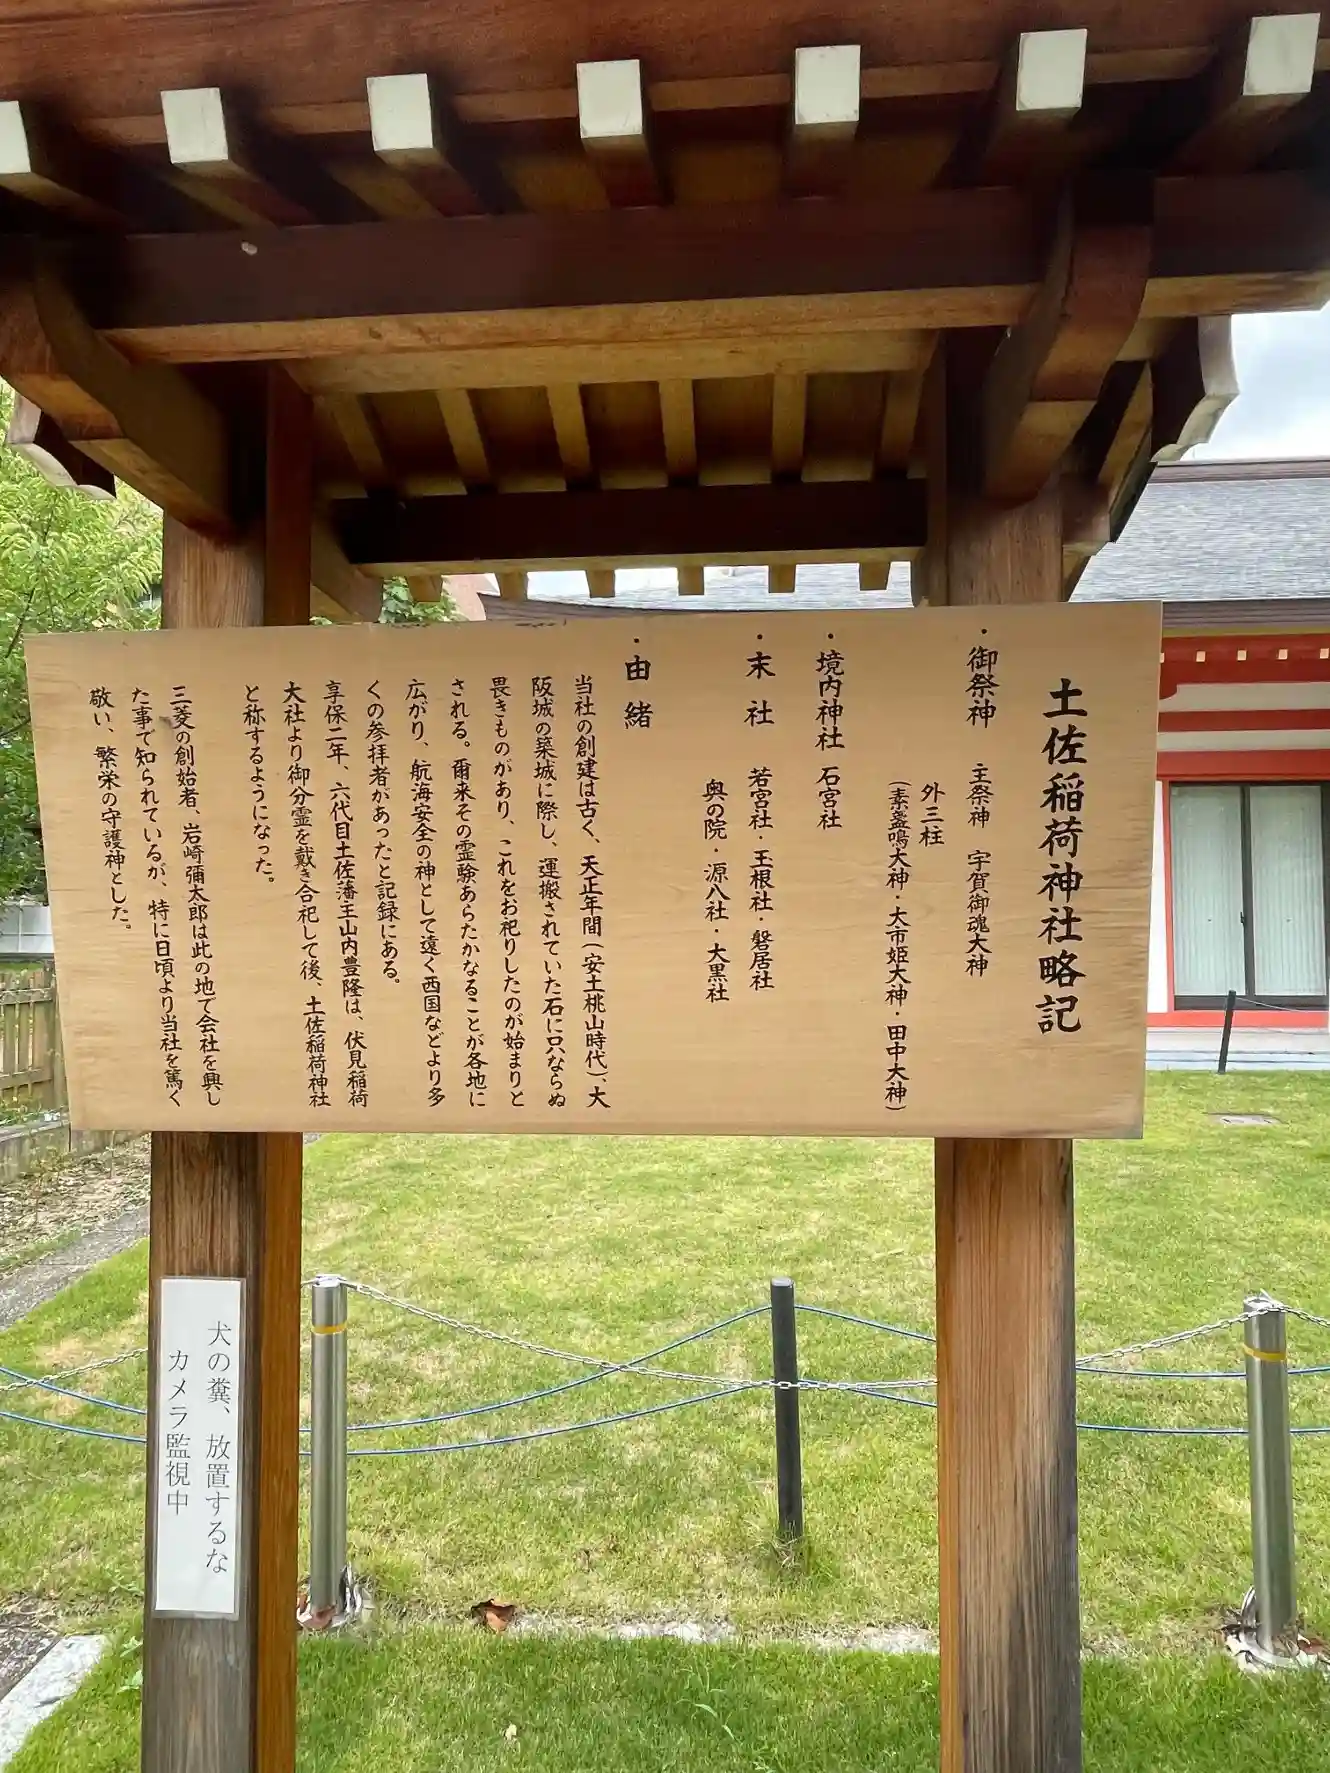 土佐稲荷神社略記
・御祭神 主祭神 宇賀御魂大神
外三柱
(素盞鳴大神・大市姫大神・田中大神)
・境内神社 石宮社
・末社 若宮社・玉根社・磐居社
奥の院・源八社・大黒社
・由緒
当社の創建は古く、天正年間(安土桃山時代)、大
阪城の築城に際し、運搬されていた石に只ならぬ
畏きものがあり、これをお祀りしたのが始まりと
される。爾来その霊験あらたかなることが各地に
広がり、航海安全の神として遠く西国などより多
くの参拝者があったと記録にある。
享保二年、六代目土佐藩主山内豊隆は、伏見稲荷
大社より御分霊を戴き合祀して後、土佐稲荷神社
と称するようになった。
三菱の創始者、岩崎彌太郎は此の地で会社を興し
た事で知られているが、特に日頃より当社を篤く
敬い、繁栄の守護神とした。
犬の糞、放置するな
カメラ監視中